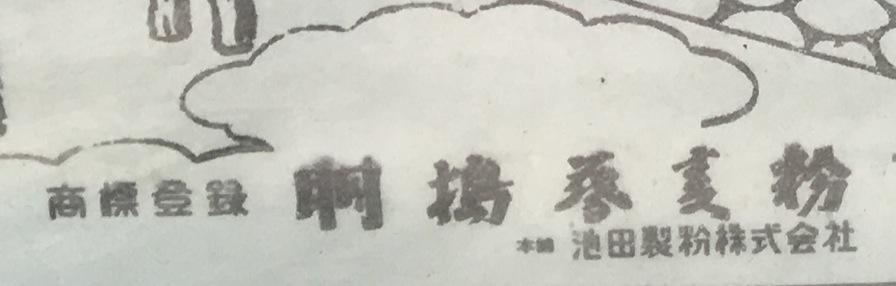 商標登録 胴搗蕎麦粉
本舗 池田製粉株式会社